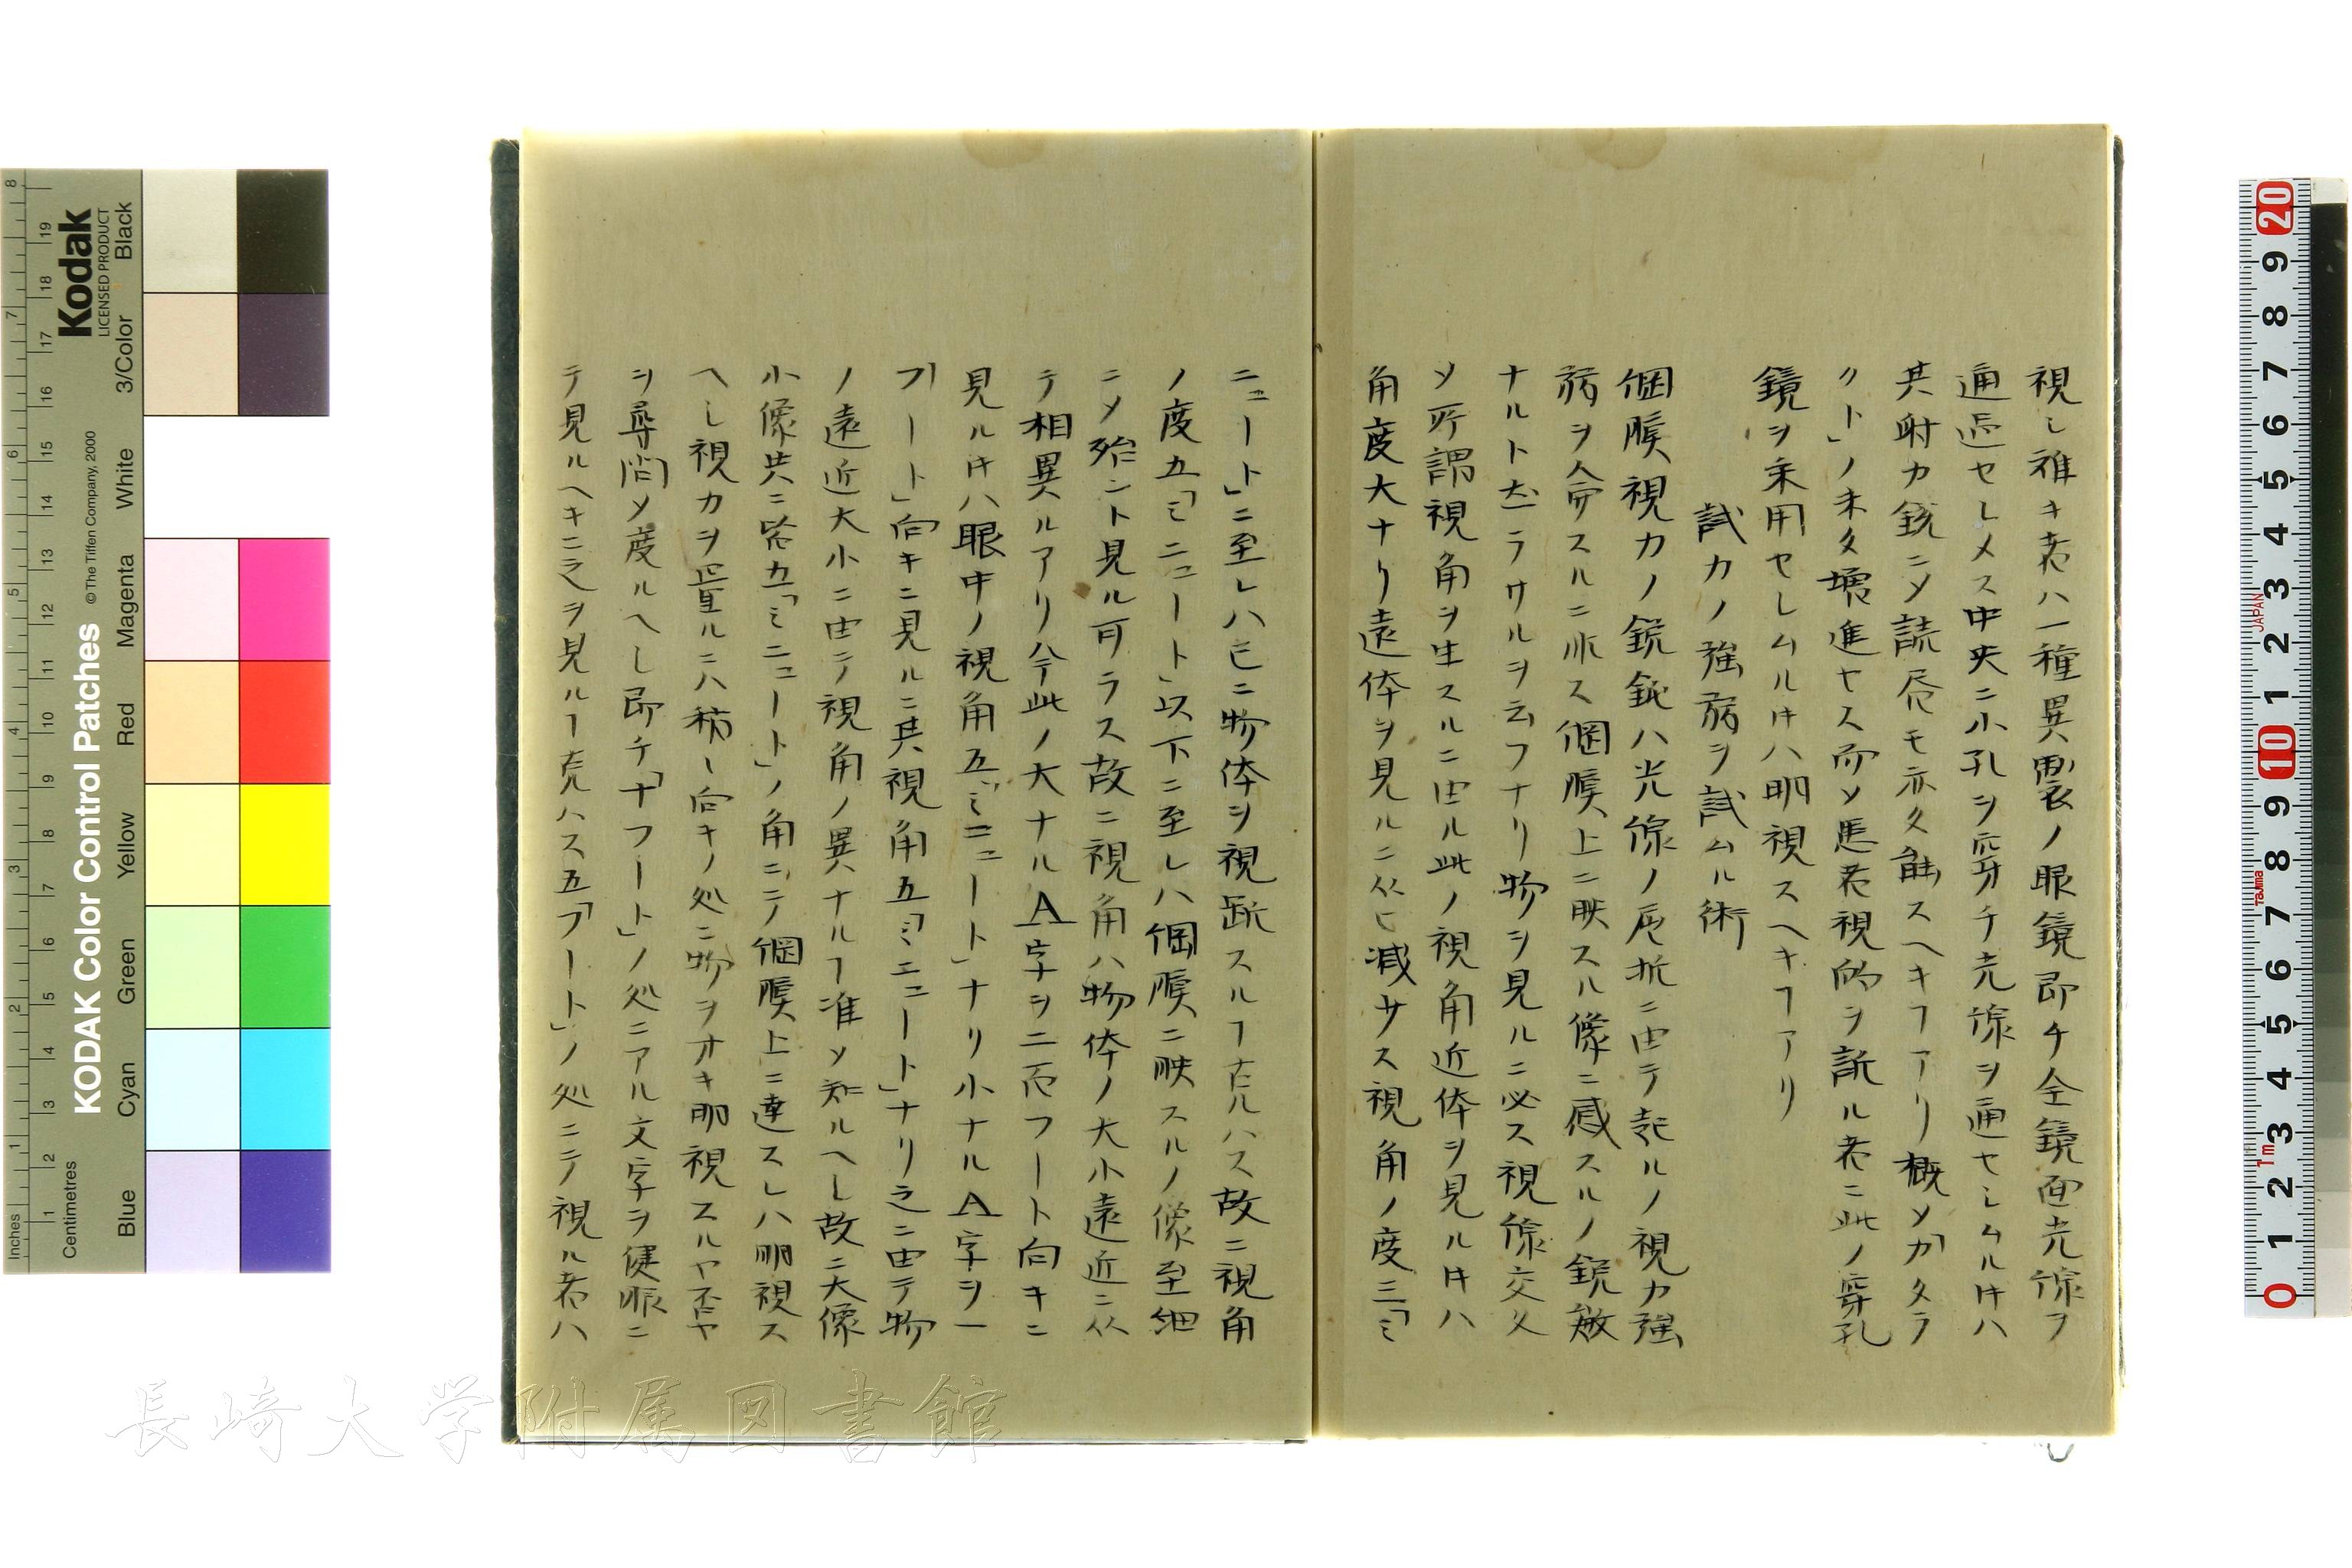 視シ雅キ者ハ一種異製ノ眼鏡即チ全鏡面光線ヲ
通過セシメス中央ニ小孔ヲ穿チ光線ヲ通セシムルキハ
其射力鋭ニメ読 モ亦タ能スヘキヿアリ概メ「カタラ
クト」ノ未タ増進セス而メ患者視 ヲ訴ル者ニ此ノ穿孔
鏡ヲ采用セシムルキハ明視スヘキヿアリ
試力ノ強弱ヲ試ムル術
個膜視力ノ鋭鈍ハ光線ノ屈折ニ由テ起ルノ視力強
弱ヲ命スルニ非ス個膜上ニ映スル像ニ感スルノ鋭敏
ナルト左ラサルヲ云フナリ物ヲ見ルニ必ス視線交叉
メ所謂視角ヲ生スルニ由ル此ノ視角近体ヲ見ルキハ
角度大ナリ遠体ヲ見ルニ从ヒ減サス視角ノ度三「ミ
ニュート」ニ至レハ已ニ物体ヲ視 スルヿ克ハス故ニ視角
ノ度五「ミニュート」以下ニ至レハ個膜ニ映スルノ像至細
ニメ殆ント見ル可ラス故ニ視角ハ物体ノ大小遠近ニ从
テ相異ルアリ今此ノ大ナルA字ヲ二百フート向キニ
見ルキハ眼中ノ視角五「ミニュート」ナリ小ナルA字ヲ一
フート」向キニ見ルニ其視角五「ミニュート」ナリ之ニ由テ物
ノ遠近大小ニ由テ視角ノ異ナルヿ准メ知ルヘシ故ニ大像
小像共ニ 五「ミニュート」ノ角ニテ個膜上ニ達スレハ明視ス
ヘシ視力ヲ量ルニハ稍々向キノ処ニ物ヲオキ明視スルヤ否ヤ
ヲ尋問メ度ルヘシ即チ「十フート」ノ処ニアル文字ヲ健眼ニ
テ見ルヘキニ之ヲ見ルヿ克ハス五「フート」ノ処ニテ視ル者ハ
Kodak
LICENSED PRODUCT
KODAK Color Control Patches
© The Tiffen Company, 2000
Inches
Centimetres
Blue
Cyan
Green
Yellow
Red
Magenta
White
3/Color
Black
JAPAN
Tajima
1m
長崎大学附属図書館